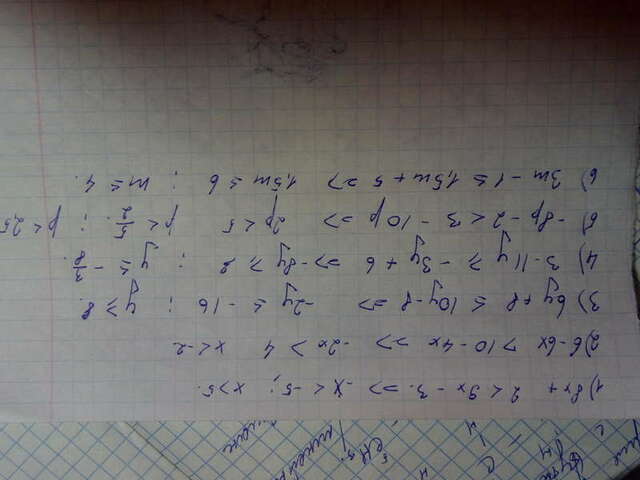 C
H
1) 8x + 2 < 9x - 3. => -x < -5; x > 5.
2) 6 - 6x > 10 - 4x => -2x > 4 x < -2
3) 6y + 8 ≤ 10y - 8 => -2y ≤ -16 ; y ≥ 8.
4) 3 - 11y ≥ -3y + 6 => -8y ≥ 2 ; y ≤ - 3/8.
5) -8p - 2 < 3 - 10p => 2p < 5 p < 5/2. ; p < 2,5
6) 3m - 1 ≤ 1,5m + 5 => 1,5m ≤ 6 ; m ≤ 4.